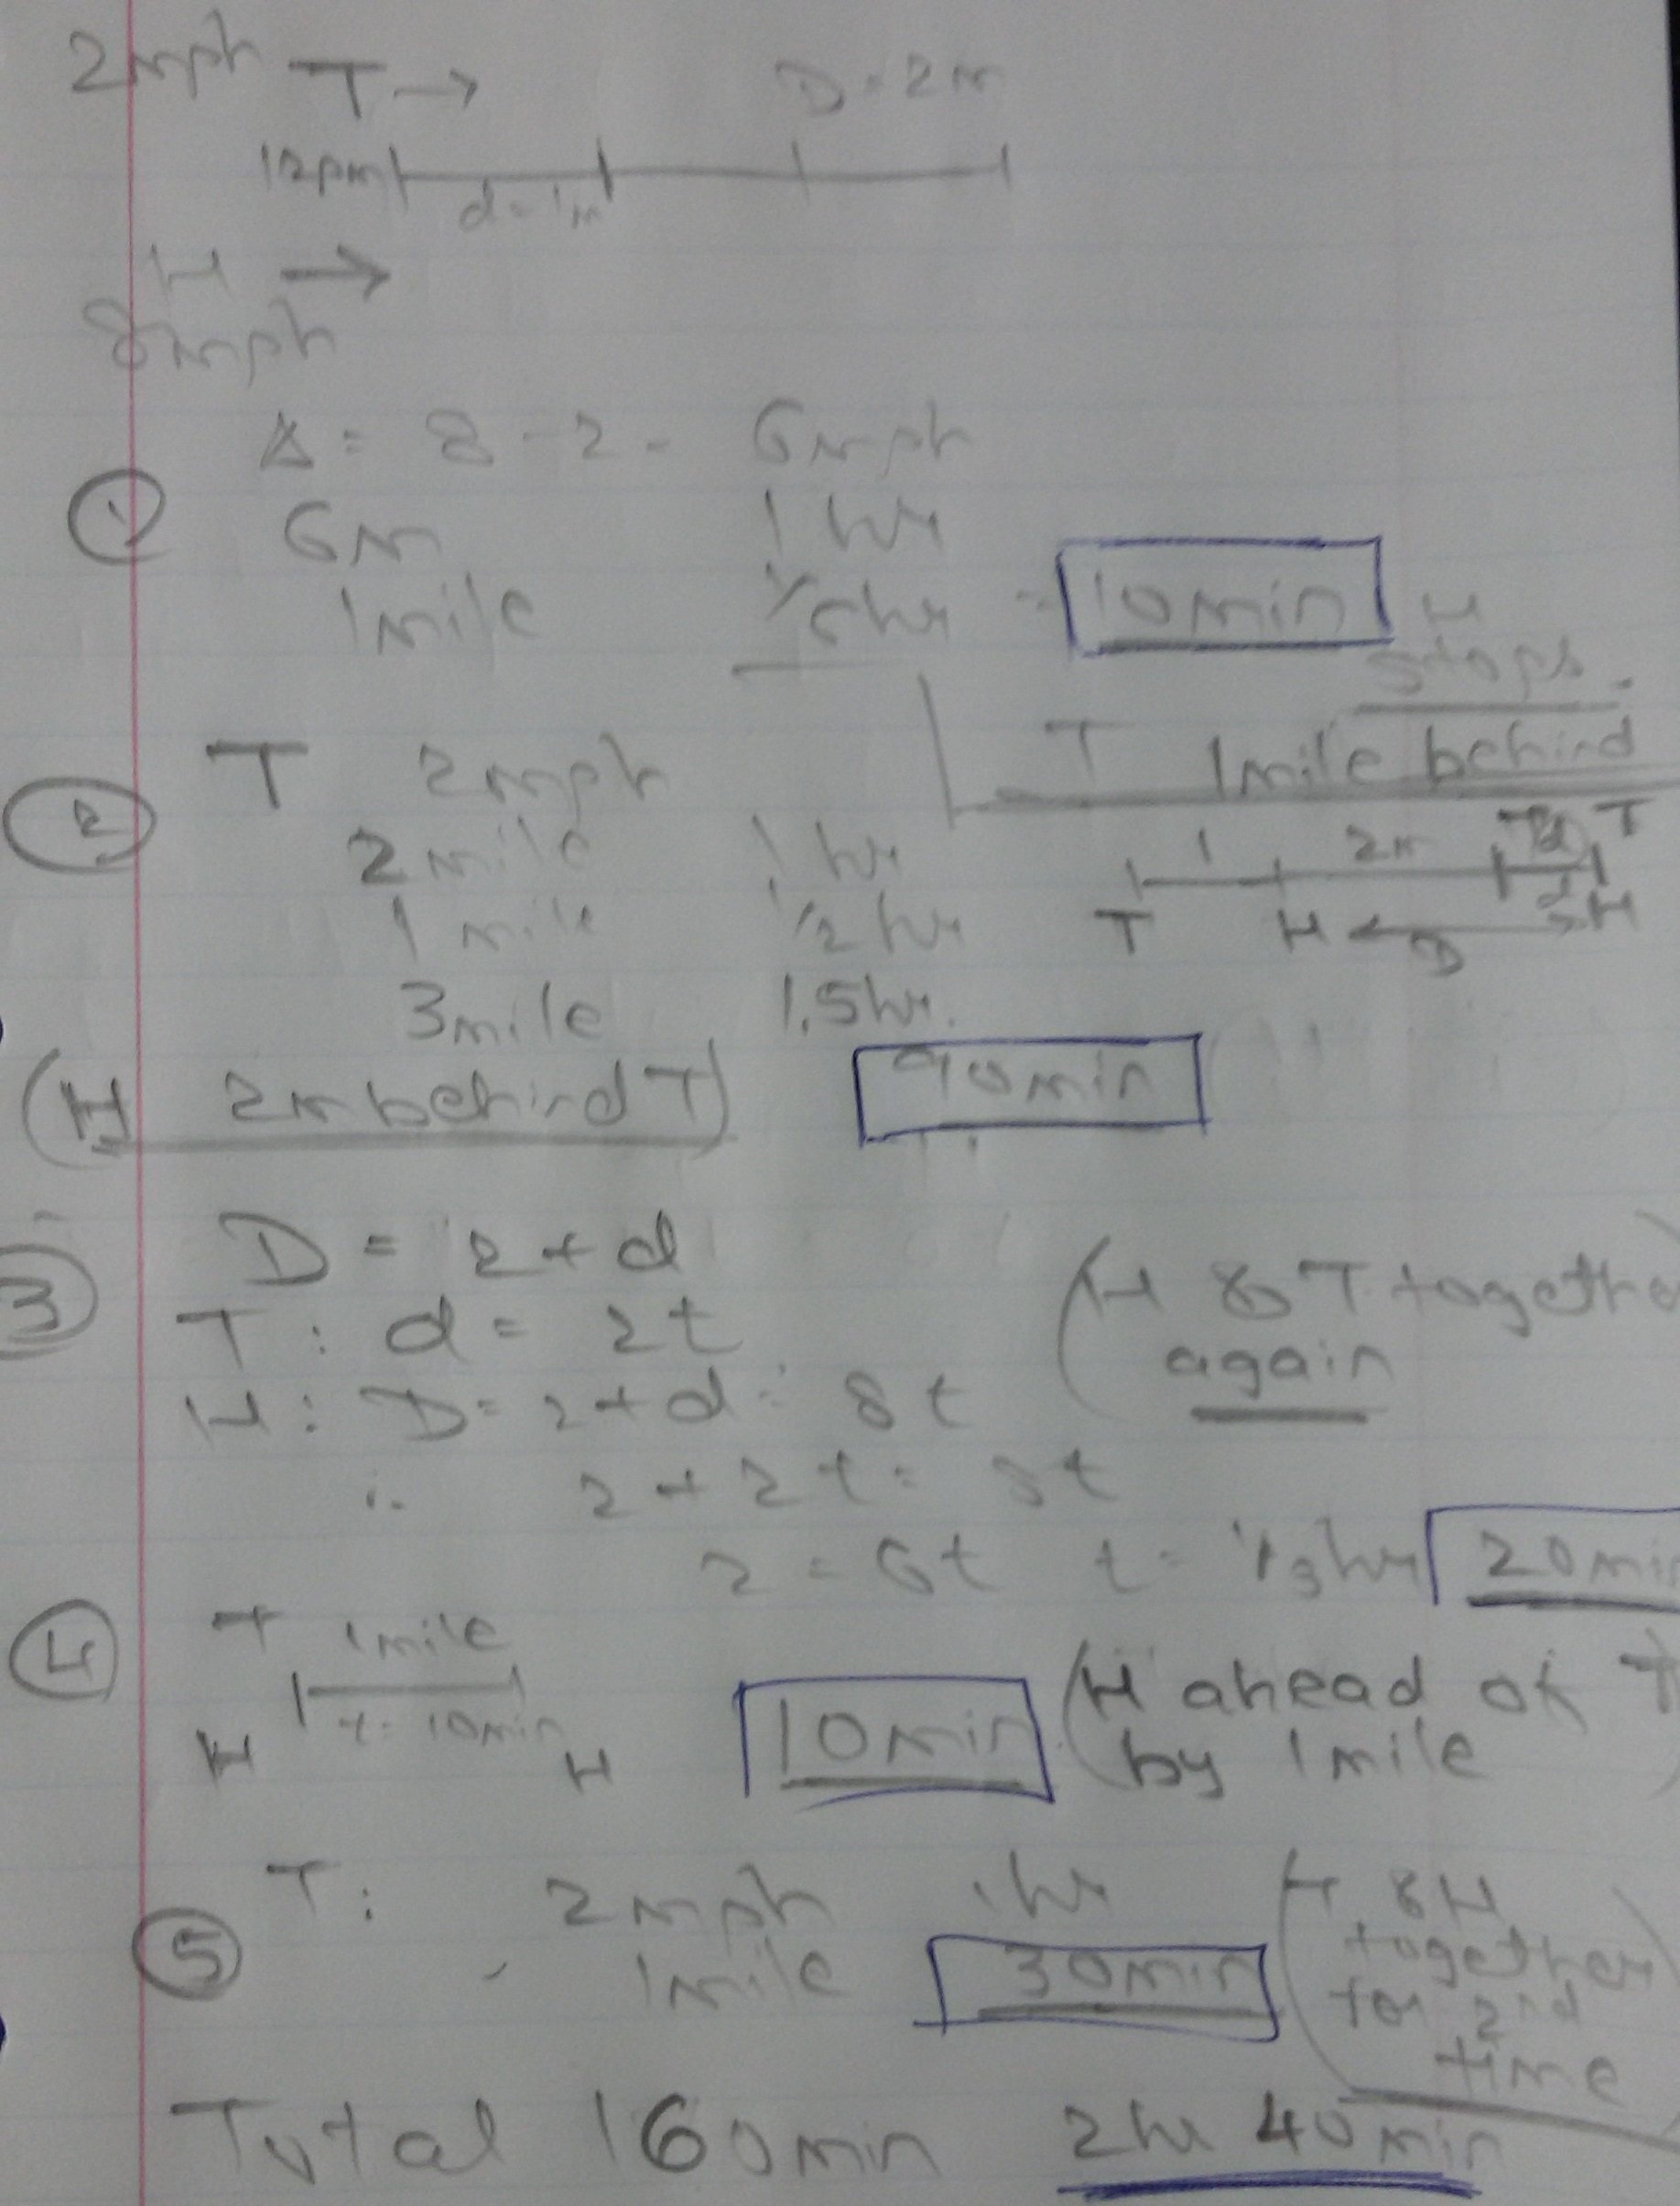 2mph T → D = 2m
12pm d = 1m
H →
8mph
Δ = 8 - 2 = 6mph
① 6m 1 hr
1mile 1/6hr = 10min H
stops.
T 2mph T 1mile behind
② 2 mile 1 hr 1 2m d T
1 mile 1/2 hr T H ← D H
3mile 1.5hr.
(H 2m behind T) 90min
③ D = 2 + d
T : d = 2t (H & T together
again
H : D = 2 + d = 8t
∴ 2 + 2t = 8t
2 = 6t t = 1/3hr 20min
④ T 1mile
t = 10min 10min (H ahead of T
H H by 1mile)
T : 2mph 1hr (T & H
⑤ 1mile 30min together
for 2nd
time
Total 160min 2hr 40min